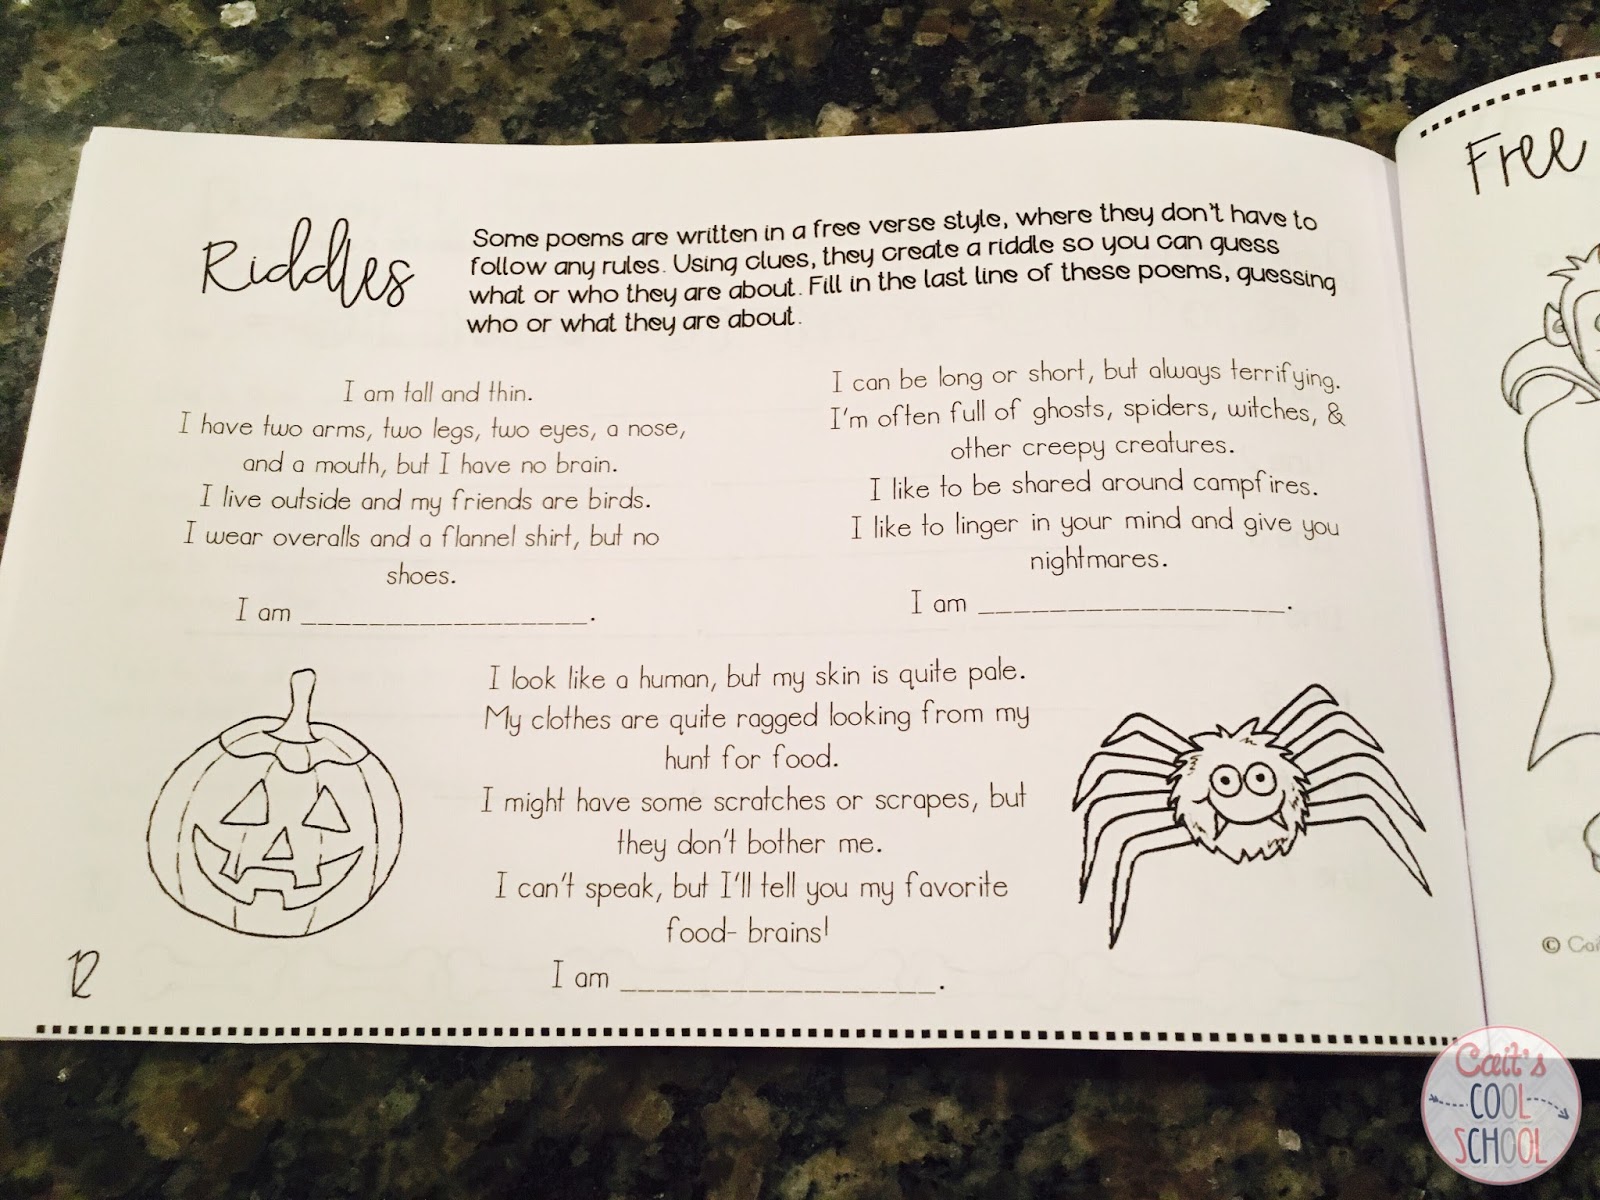 Riddles
Some poems are written in a free verse style, where they don't have to
follow any rules. Using clues, they create a riddle so you can guess
what or who they are about. Fill in the last line of these poems, guessing
who or what they are about.
I am tall and thin.
I have two arms, two legs, two eyes, a nose,
and a mouth, but I have no brain.
I live outside and my friends are birds.
I wear overalls and a flannel shirt, but no
shoes.
I am _________________.
I can be long or short, but always terrifying.
I'm often full of ghosts, spiders, witches, &
other creepy creatures.
I like to be shared around campfires.
I like to linger in your mind and give you
nightmares.
I am _________________.
I look like a human, but my skin is quite pale.
My clothes are quite ragged looking from my
hunt for food.
I might have some scratches or scrapes, but
they don't bother me.
I can't speak, but I'll tell you my favorite
food- brains!
I am _________________.
12
Free
©
Cait's
COOL
SCHOOL